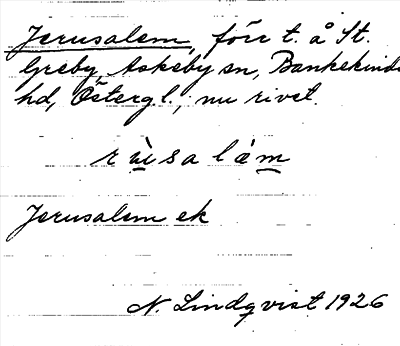 Jerusalem, förr t. å St.
Greby, Askeby sn, Bankekinds
hd, Östergl., nu rivet.
rùsalám
Jerusalem ek
N. Lindqvist 1926